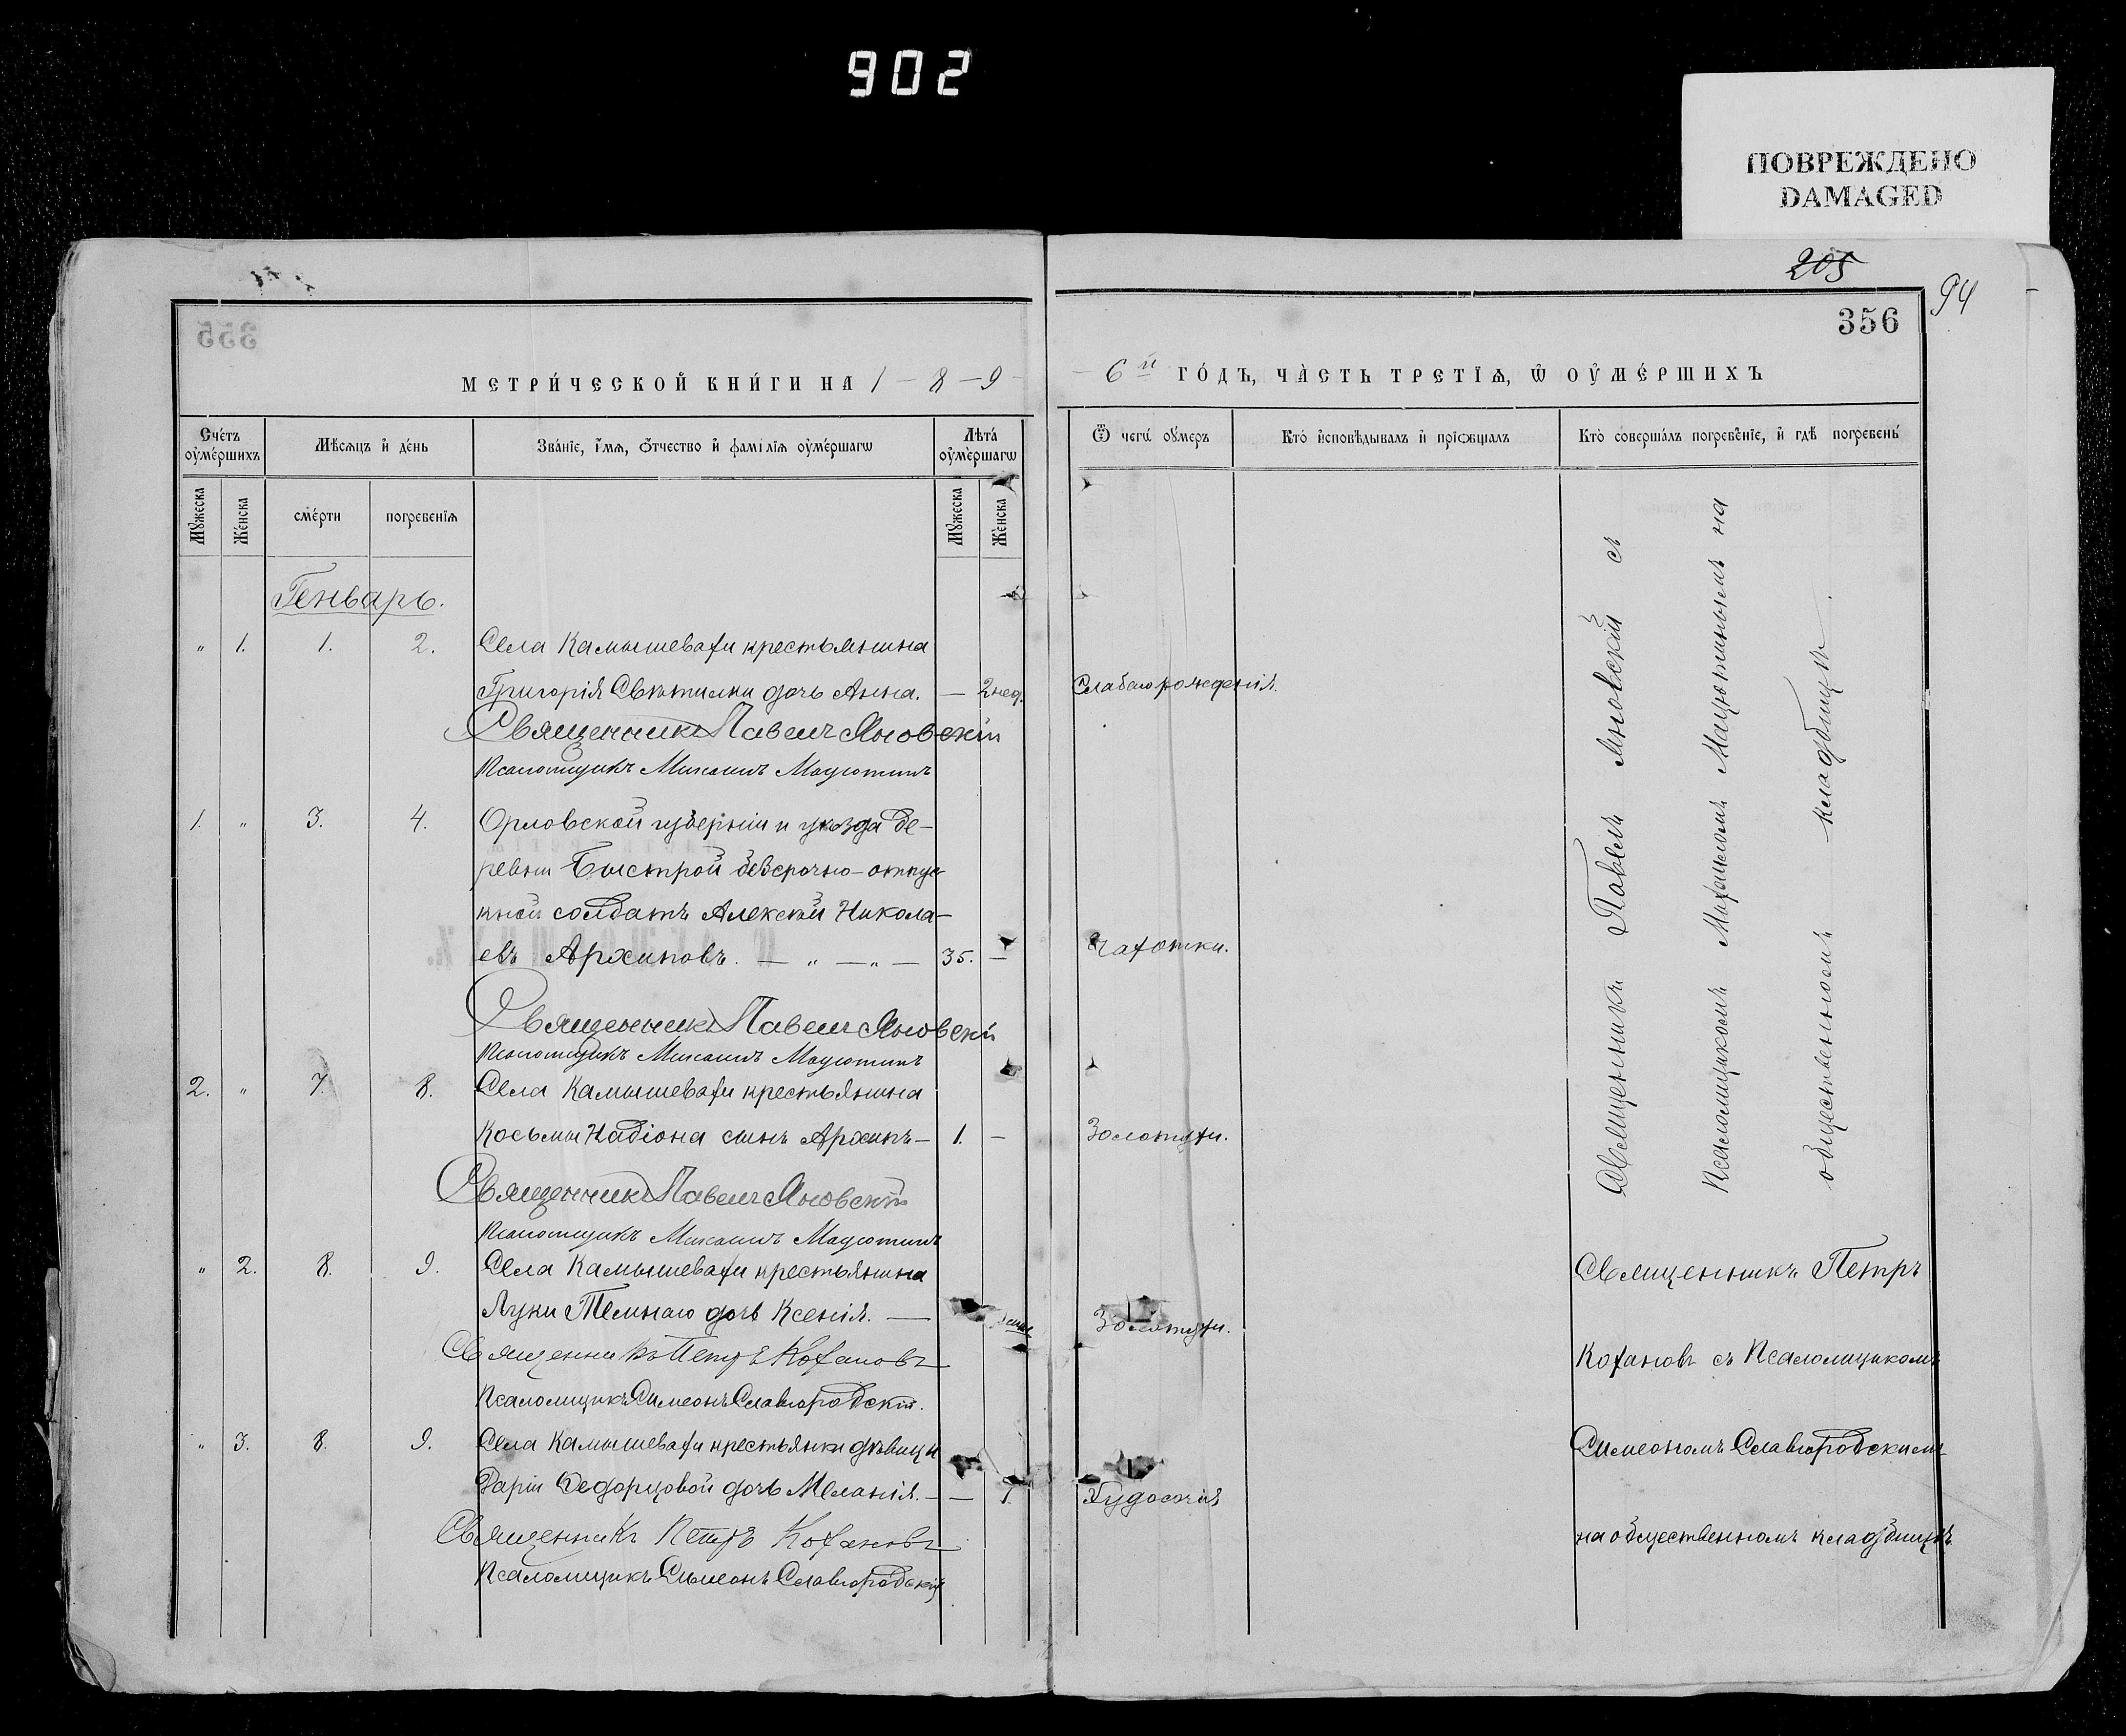 902
ПОВРЕЖДЕНО
DAMAGED
205
94
355
356
МЕТРИ́ЧЕСКОЙ КНИ́ГИ НА 1-8-9-
-6й ГО́ДЪ, ЧА́СТЬ ТРЕТІѦ, Ѿ ОУМЕ́РШИХЪ
Счетъ оумершихъ
Мѣсяцъ и день
Званіе, имя, отчество и фамилія оумершагѡ
Лѣта оумершагѡ
Ѿ чегѡ оумеръ
Кто исповѣдывалъ и пріобщалъ
Кто совершалъ погребеніе, и гдѣ погребены
Мужеска
Женска
смерти
погребенія
Мужеска
Женска
Генварь.
" 1. 1. 2. Села Камышевахи крестьянина
Григорія Свѣтилки дочь Анна. — 2 нед. Слабаго рожденія.
Священникъ Павелъ Яновскій
Псаломщикъ Михаилъ Мацютинъ
1. " 3. 4. Орловской губерніи и уѣзда де-
ревни Быстрой безсрочно-отпус
кной солдатъ Алексѣй Никола-
евъ Архиповъ. — " — " — 35. — Чахотки.
Священникъ Павелъ Яновскій
Псаломщикъ Михаилъ Мацютинъ
2. " 7. 8. Села Камышевахи крестьянина
Косьмы Набіона сынъ Архипъ — 1. — Золотухи.
Священникъ Павелъ Яновскій
Псаломщикъ Михаилъ Мацютинъ
Священникъ Павелъ Яновскій съ
Псаломщикомъ Михаиломъ Мацютинымъ на
общественномъ кладбищѣ.
" 2. 8. 9. Села Камышевахи крестьянина
Луки Темнаго дочь Ксенія. — Золотухи.
Священникъ Петръ Кохановъ
Псаломщикъ Симеонъ Славгородскій.
" 3. 8. 9. Села Камышевахи крестьянки дѣвицы
Даріи Федорцовой дочь Меланія. — — 1. Худосочія
Священникъ Петръ Кохановъ
Псаломщикъ Симеонъ Славгородскій
Священникъ Петръ
Кохановъ съ Псаломщикомъ
Симеономъ Славгородскимъ
на общественномъ кладбищѣ.